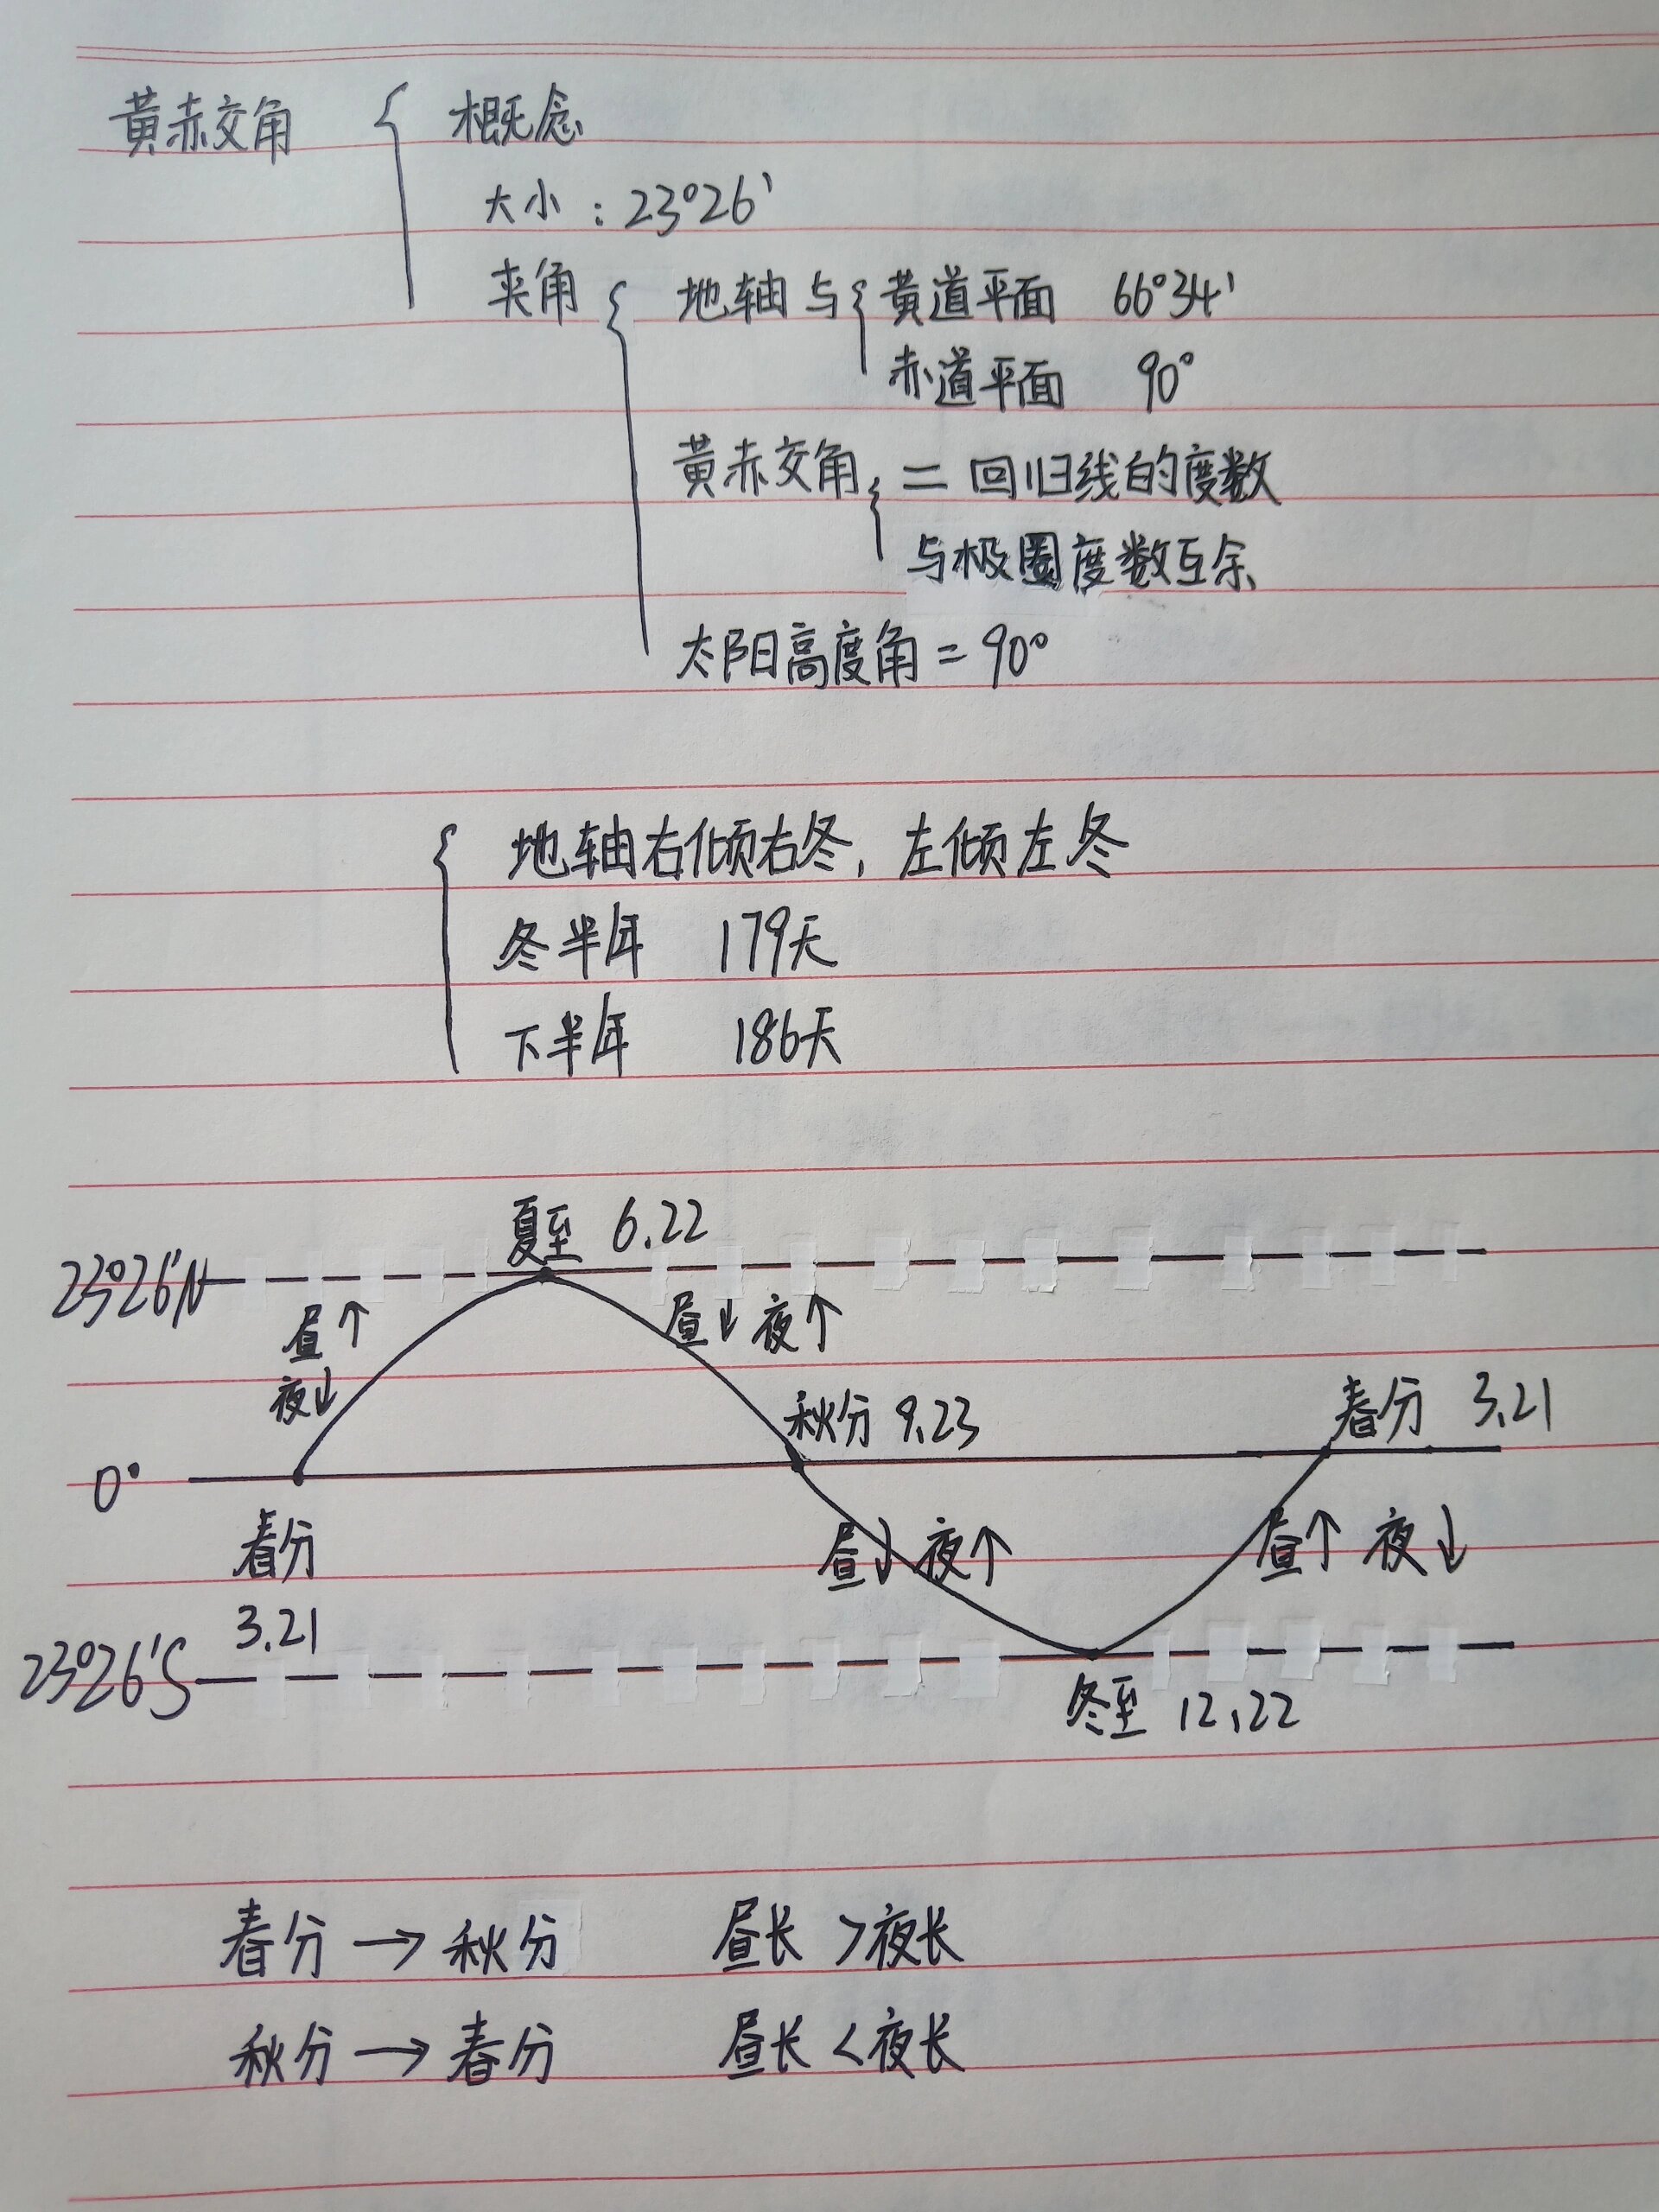 黄赤交角 { 概念
大小：23°26'
夹角 { 地轴与 { 黄道平面 66°34'
赤道平面 90°
黄赤交角 { = 回归线的度数
与极圈度数互余
太阳高度角 = 90°
{ 地轴右倾右冬，左倾左冬
冬半年 179天
下半年 186天
夏至 6.22
23°26'N
昼↑ 昼↓夜↑
夜↓
秋分 9.23 春分 3.21
0°
春分 昼↓夜↑ 昼↑夜↓
3.21
23°26'S
冬至 12.22
春分 → 秋分 昼长 > 夜长
秋分 → 春分 昼长 < 夜长